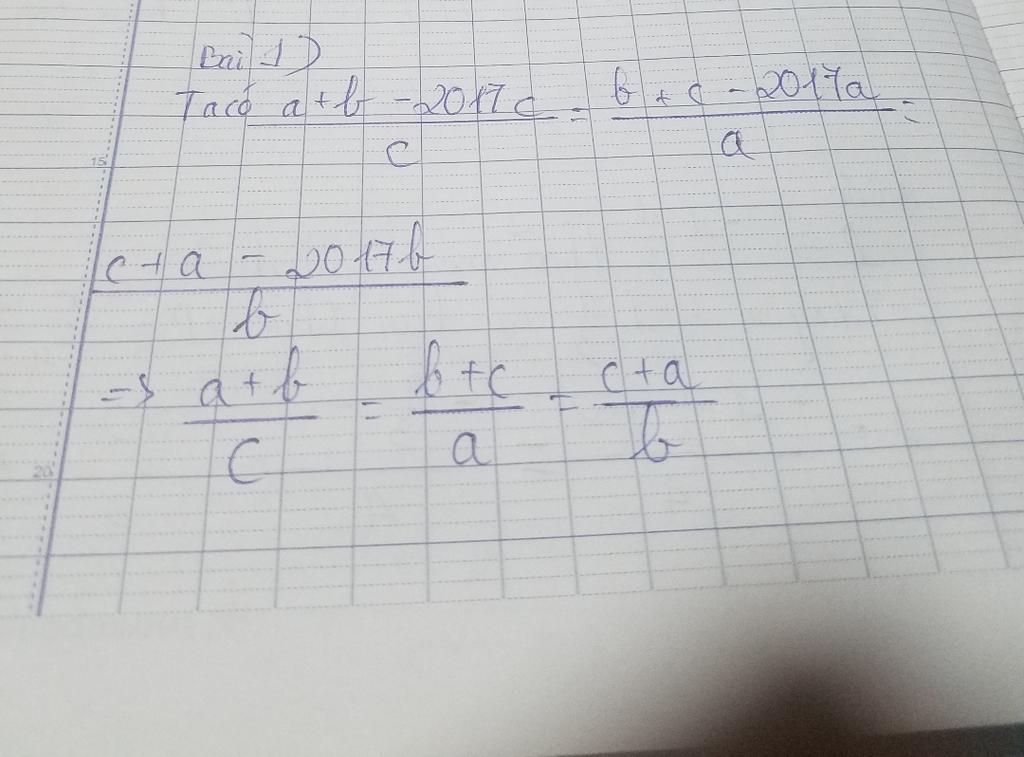 Bài 1)
Ta có (a + b - 2017c)/c = (b + c - 2017a)/a =
(c + a - 2017b)/b
=> (a + b)/c = (b + c)/a = (c + a)/b
15
20